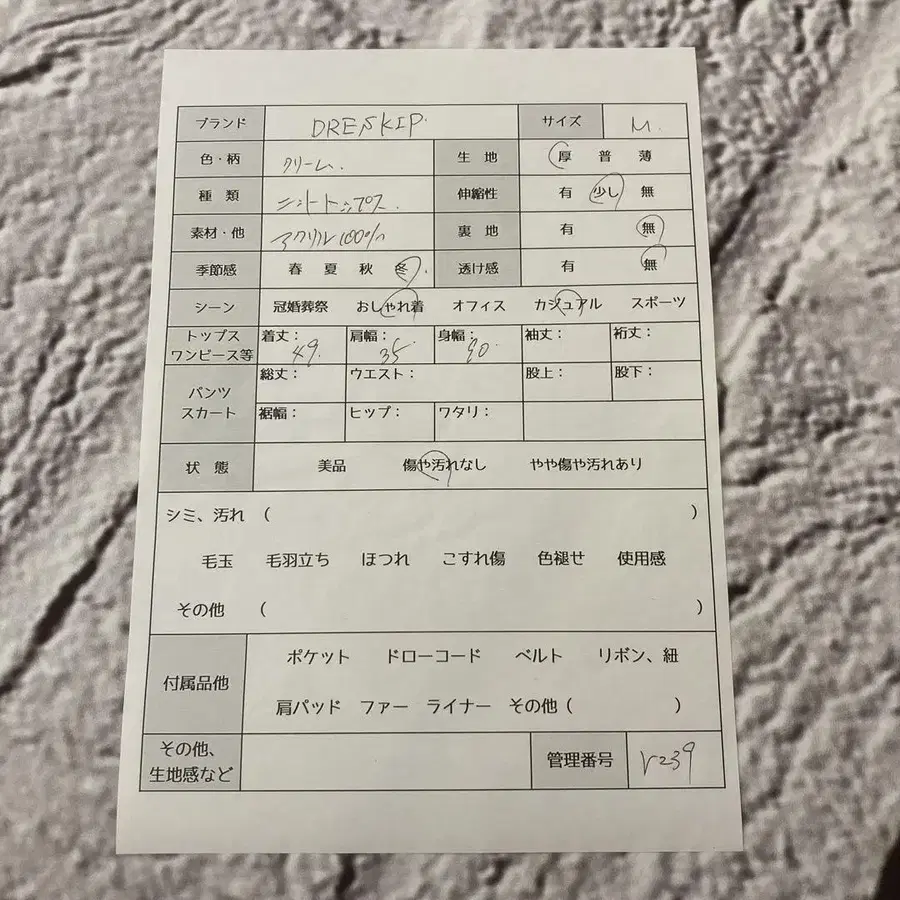 ブランド DRESKIP. サイズ M.
色・柄 クリーム. 生地 厚 普 薄
種類 ニットトップス. 伸縮性 有 少し 無
素材・他 アクリル100% 裏地 有 無
季節感 春 夏 秋 冬. 透け感 有 無
シーン 冠婚葬祭 おしゃれ着 オフィス カジュアル スポーツ
トップス ワンピース等 着丈: 49. 肩幅: 35. 身幅: 袖丈: 裄丈:
パンツ スカート 総丈: ウエスト: 股上: 股下:
裾幅: ヒップ: ワタリ:
状態 美品 傷や汚れなし やや傷や汚れあり
シミ、汚れ ( )
毛玉 毛羽立ち ほつれ こすれ傷 色褪せ 使用感
その他 ( )
付属品他 ポケット ドローコード ベルト リボン、紐
肩パッド ファー ライナー その他 ( )
その他、
生地感など 管理番号